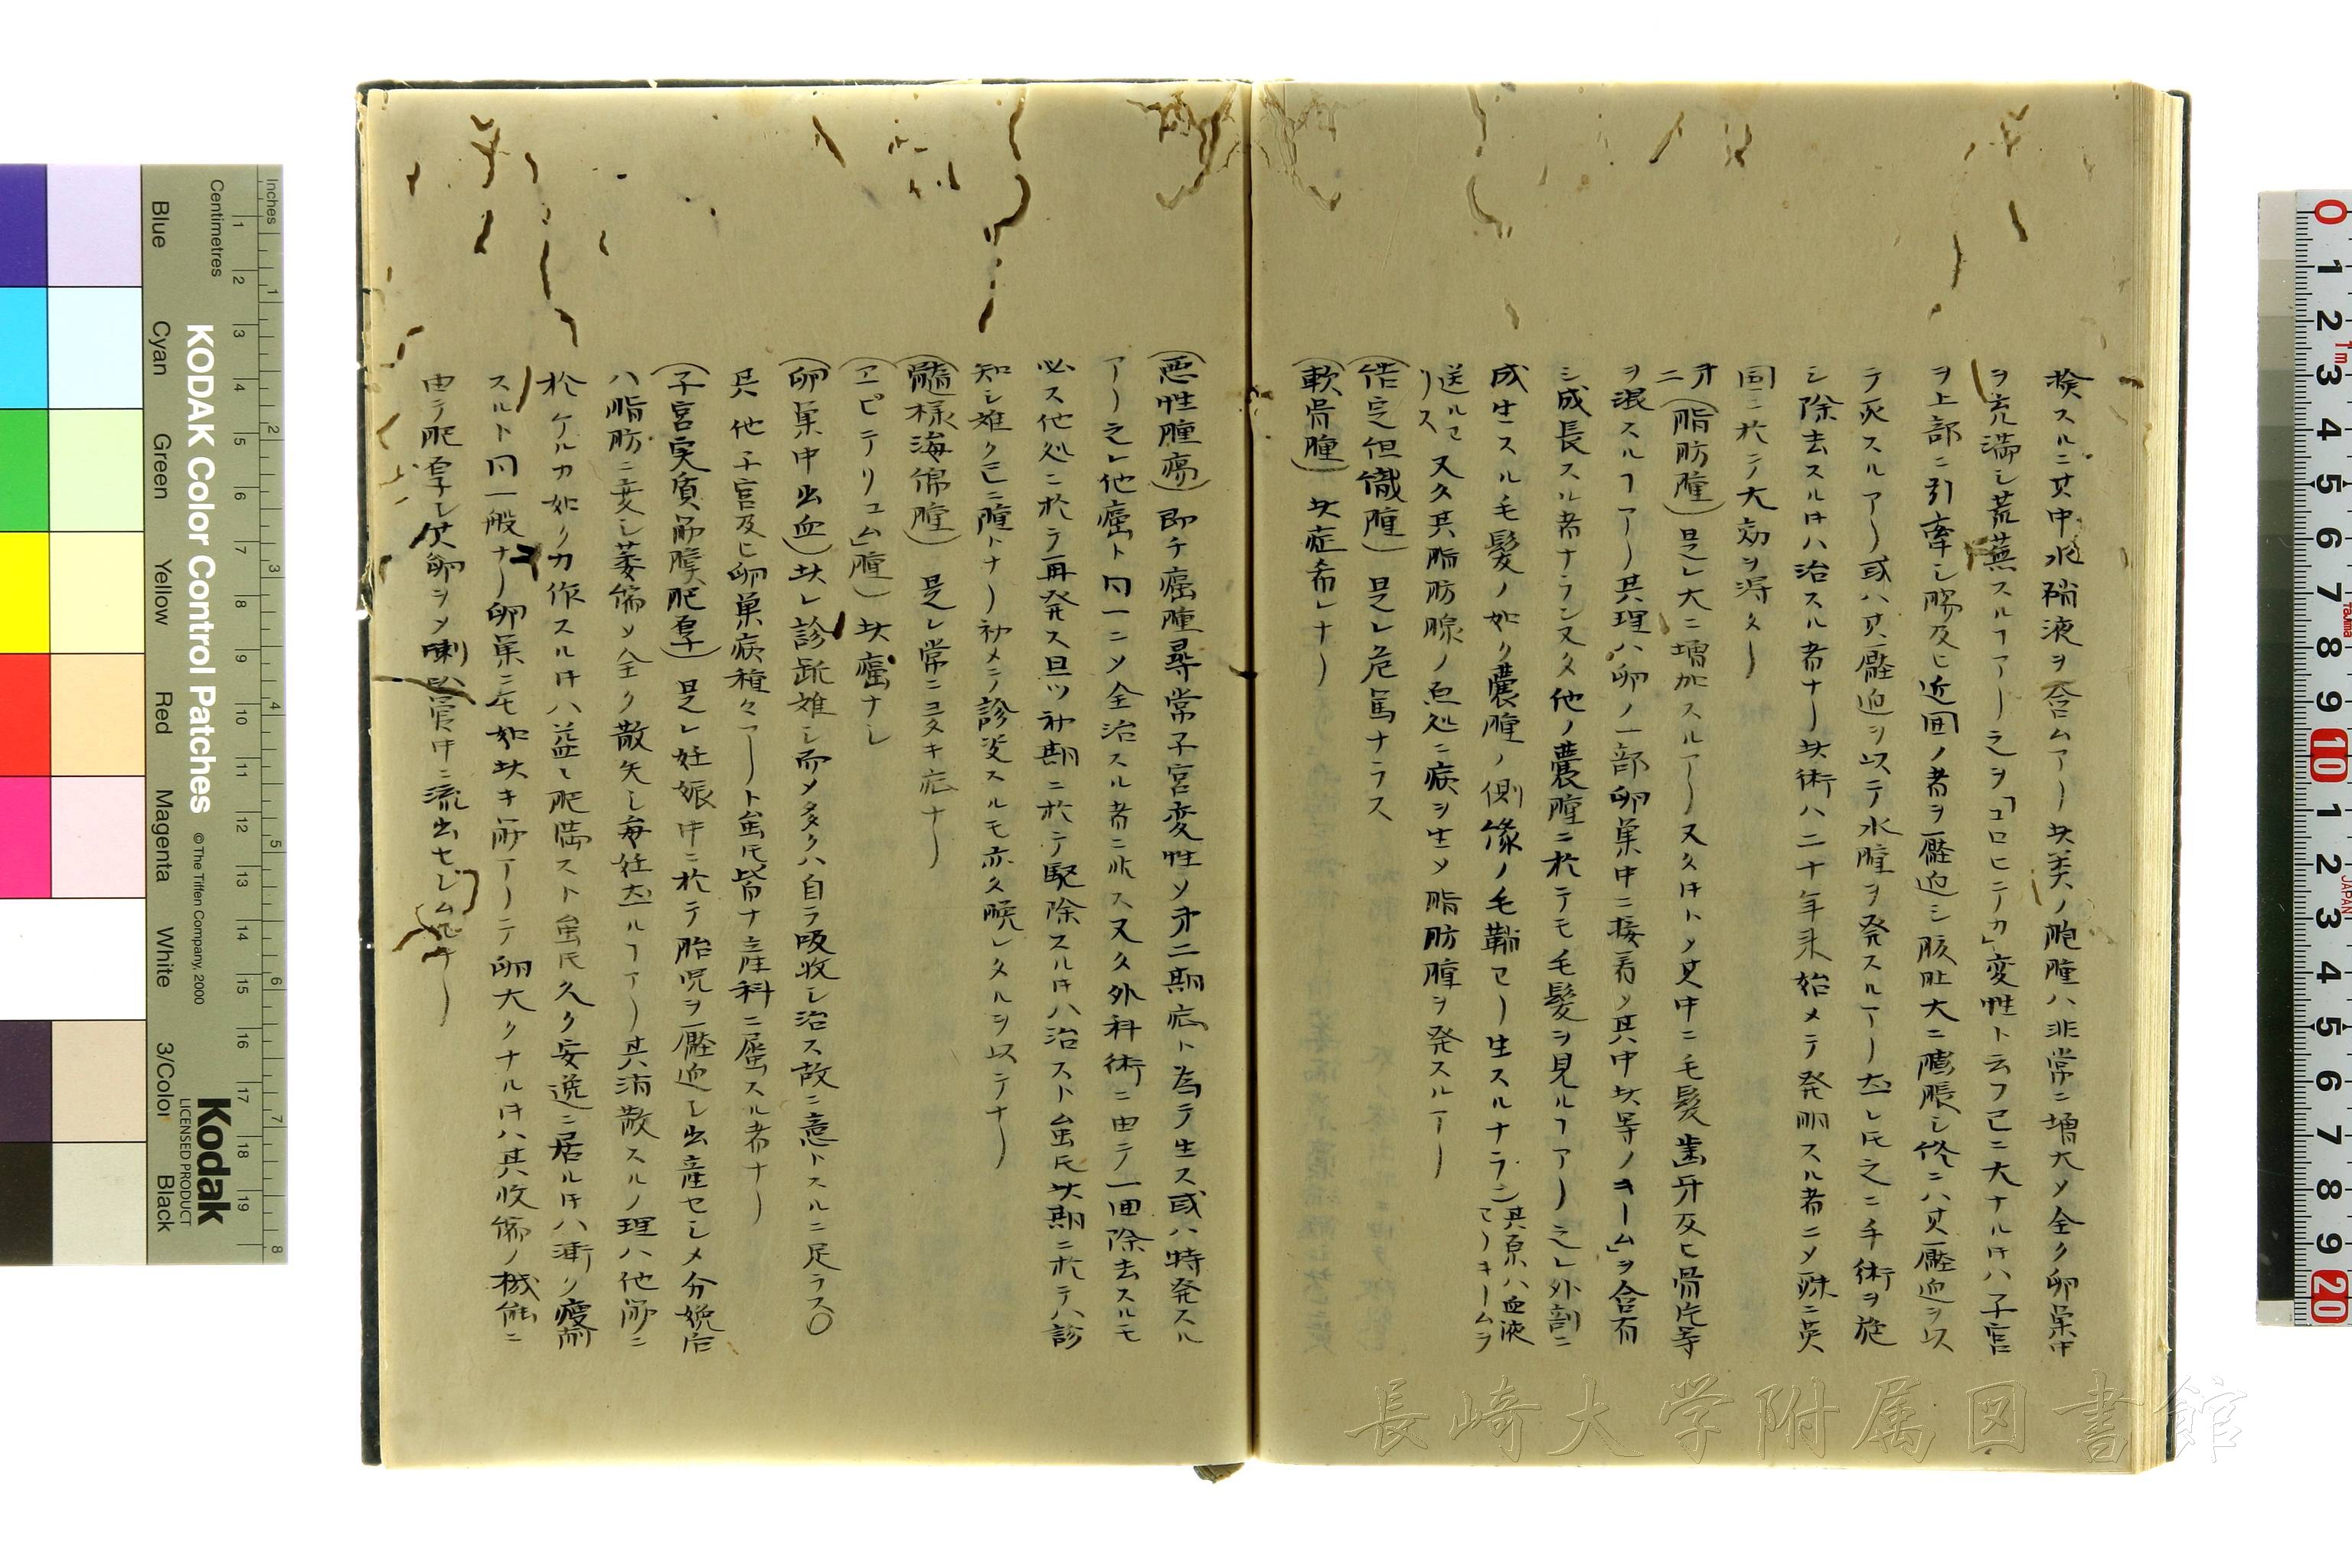 検スルニ其中水様液ヲ含ムアリ此美ノ胞腫ハ非常ニ増大〆全ク卵巣中
ヲ充満シ荒蕪スルヿアリ之ヲ「コロヒテカ」変性ト云フ已ニ大ナル時ハ子宮
ヲ上部ニ引牽シ膓及ヒ近囲ノ者ヲ壓迫シ腹肚大ニ膨脹シ終ニハ其壓迫ヲ以
テ死スルアリ或ハ其壓迫ヲ以テ水腫ヲ発スルアリ然レ𪜈之ニ手術ヲ施
シ除去スル時ハ治スル者ナリ此術ハ二十年来始メテ発明スル者ニ〆殊ニ英
国ニ於テ大効ヲ得タリ
第二(脂肪腫)是レ大ニ増加スルアリ又タ時ト〆其中ニ毛髪歯牙及ヒ骨片等
ヲ混スルヿアリ其理ハ卵ノ一部卵巣中ニ接着〆其中此等ノキームヲ含有
シ成長スル者ナラン又タ他ノ嚢腫ニ於テモ毛髪ヲ見ルヿアリ之レ外部ニ
成生スル毛髪ノ如ク嚢腫ノ側縁ノ毛鞘ヨリ生スルナラン其原ハ血液
ヨリキームヲ
送ルヿ又タ其脂肪腺ノ
リス
(結定但織腫)是レ危篤ナラス
(軟骨腫)此症希レナリ
(悪性腫瘍)即チ癌腫尋常子宮変性〆第二期症ト為テ生ス或ハ特発スル
アリ之レ他癌ト同一ニ〆全治スル者ニ非ス又タ外科術ニ由テ一回除去スルモ
必ス他処ニ於テ再発ス且ツ初期ニ於テ駆除スル時ハ治スト虽𪜈此期ニ於テハ診
知シ難ク已ニ腫トナリ初メテ診定スルモ亦タ晩レタルヲ以テナリ
(髓様海綿腫)是レ常ニヨタキ症ナリ
(ヱピテリユム腫)此癌ナシ
(卵巣中出血)此レ診断難シ而〆多クハ自ラ吸收シ治ス故ニ意トスルニ足ラス〇
其他子宮及ヒ卵巣病種々アリト虽𪜈皆ナ産科ニ属スル者ナリ
(子宮実質筋膜肥厚)是レ妊娠中ニ於テ胎児ヲ壓迫シ出産セシメ分娩后
ハ脂肪ニ変シ萎縮〆全ク散失シ毎在然ルヿアリ其消散スルノ理ハ他所ニ
於ケル力如ク力作スル時ハ益レ肥満スト虽𪜈久ク安逸ニ居ル時ハ漸ク瘦削
スルト同一般ナリ卵巣ニモ如此キ所アリテ卵大クナル時ハ其收縮ノ機能ニ
由テ肥厚シ其卵ヲ〆喇叭管中ニ流出セシム